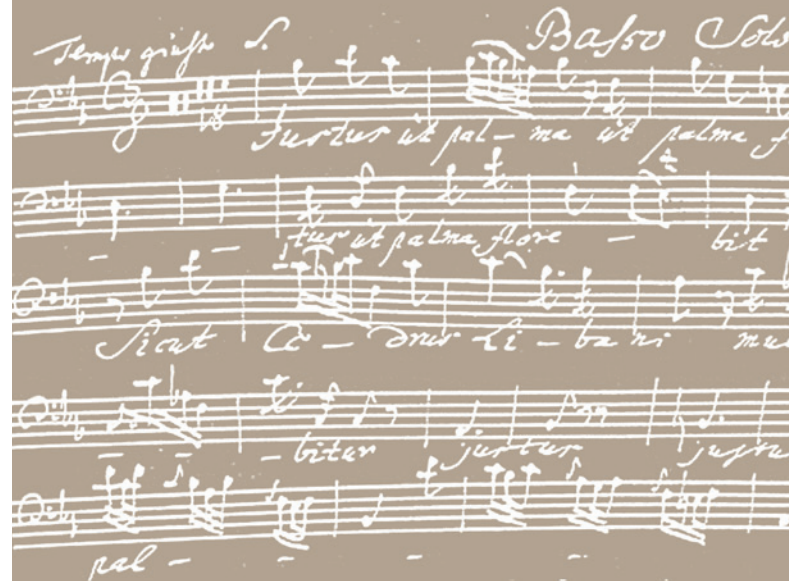 Tempo giusto S. Basso Solo
Justus ut pal - ma ut palma f
- - tus ut palma flore - bit
Sicut Ce - drus Li - ba ni mul
- - - bitur justus justu
pal - - - -